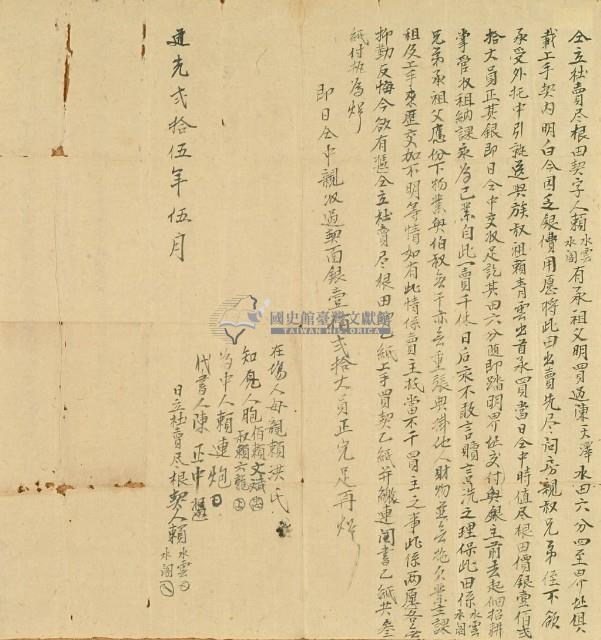 仝立杜賣尽根田契字人賴水雲水阔有承祖父明買過陳天澤水田六分四至界址俱
載上手契内明白今因乏銀費用愿將此田出賣先尽问房親叔兄弟侄不欲
承受外托中引就送與族叔祖賴青雲出首承買當日仝中時值尽根田價銀壹佰弍
拾大員正其銀即日仝中交收足訖其田六分随即踏明界址交付與銀主前去起佃招耕
掌管收租納課永為己業自此一賣千休日后永不敢言贖言洗之理保此田係水雲水阔
兄弟承祖父應份下物業與伯叔無干亦無重張典掛他人財物並無拖欠業主課
租及上手來歷交加不明等情如有此情係賣主抵當不干買主之事此係两愿各無
抑勒反悔今欲有憑仝立杜賣尽根田契乙紙上手買契乙紙并繳連阄書乙紙共叁
紙付执為炤
即日仝中親收過契面銀壹佰弍拾大員正完足再炤
在場人母親賴洪氏
知見人胞伯賴文斌
叔賴六龍
為中人賴連炮
代書人陳正中
道光弍拾伍年伍月 日立杜賣尽根契人賴水雲
水阔
國史館臺灣文獻館
TAIWAN HISTORICA